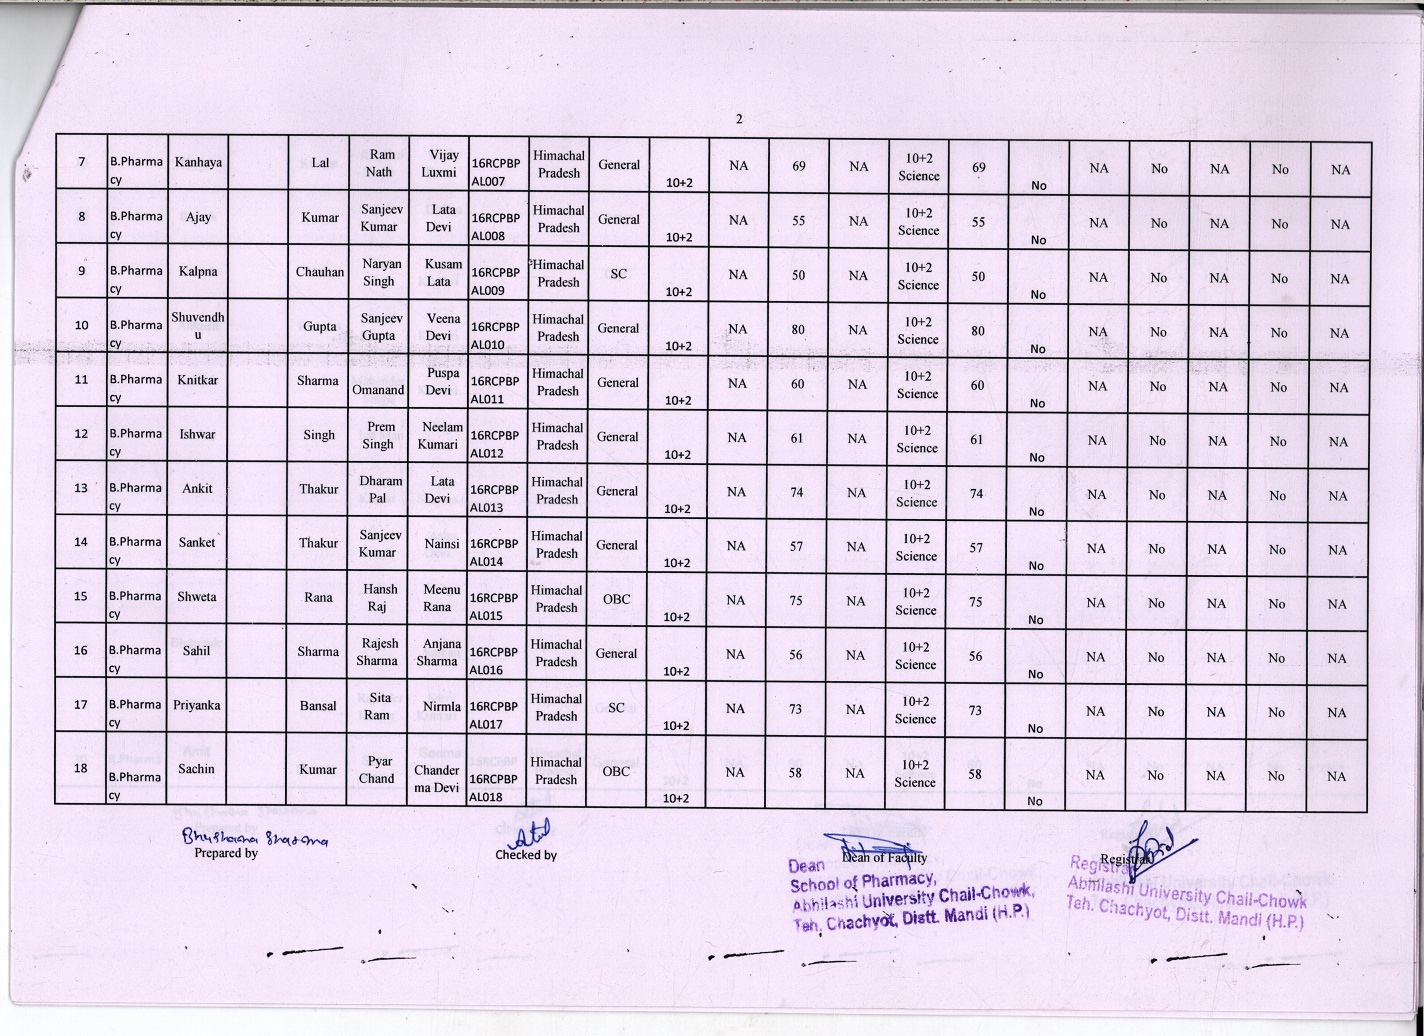 2
7 B.Pharmacy Kanhaya Lal Ram Nath Vijay Luxmi 16RCPBPAL007 Himachal Pradesh General 10+2 NA 69 NA 10+2 Science 69 No NA No NA No NA
8 B.Pharmacy Ajay Kumar Sanjeev Kumar Lata Devi 16RCPBPAL008 Himachal Pradesh General 10+2 NA 55 NA 10+2 Science 55 No NA No NA No NA
9 B.Pharmacy Kalpna Chauhan Naryan Singh Kusam Lata 16RCPBPAL009 Himachal Pradesh SC 10+2 NA 50 NA 10+2 Science 50 No NA No NA No NA
10 B.Pharmacy Shuvendhu Gupta Sanjeev Gupta Veena Devi 16RCPBPAL010 Himachal Pradesh General 10+2 NA 80 NA 10+2 Science 80 No NA No NA No NA
11 B.Pharmacy Knitkar Sharma Omanand Puspa Devi 16RCPBPAL011 Himachal Pradesh General 10+2 NA 60 NA 10+2 Science 60 No NA No NA No NA
12 B.Pharmacy Ishwar Singh Prem Singh Neelam Kumari 16RCPBPAL012 Himachal Pradesh General 10+2 NA 61 NA 10+2 Science 61 No NA No NA No NA
13 B.Pharmacy Ankit Thakur Dharam Pal Lata Devi 16RCPBPAL013 Himachal Pradesh General 10+2 NA 74 NA 10+2 Science 74 No NA No NA No NA
14 B.Pharmacy Sanket Thakur Sanjeev Kumar Nainsi 16RCPBPAL014 Himachal Pradesh General 10+2 NA 57 NA 10+2 Science 57 No NA No NA No NA
15 B.Pharmacy Shweta Rana Hansh Raj Meenu Rana 16RCPBPAL015 Himachal Pradesh OBC 10+2 NA 75 NA 10+2 Science 75 No NA No NA No NA
16 B.Pharmacy Sahil Sharma Rajesh Sharma Anjana Sharma 16RCPBPAL016 Himachal Pradesh General 10+2 NA 56 NA 10+2 Science 56 No NA No NA No NA
17 B.Pharmacy Priyanka Bansal Sita Ram Nirmla 16RCPBPAL017 Himachal Pradesh SC 10+2 NA 73 NA 10+2 Science 73 No NA No NA No NA
18 B.Pharmacy Sachin Kumar Pyar Chand Chanderma Devi 16RCPBPAL018 Himachal Pradesh OBC 10+2 NA 58 NA 10+2 Science 58 No NA No NA No NA
Prepared by Checked by Dean of Faculty Registrar
Dean
School of Pharmacy,
Abhilashi University Chail-Chowk,
Teh. Chachyot, Distt. Mandi (H.P.)
Registrar
Abhilashi University Chail-Chowk
Teh. Chachyot, Distt. Mandi (H.P.)